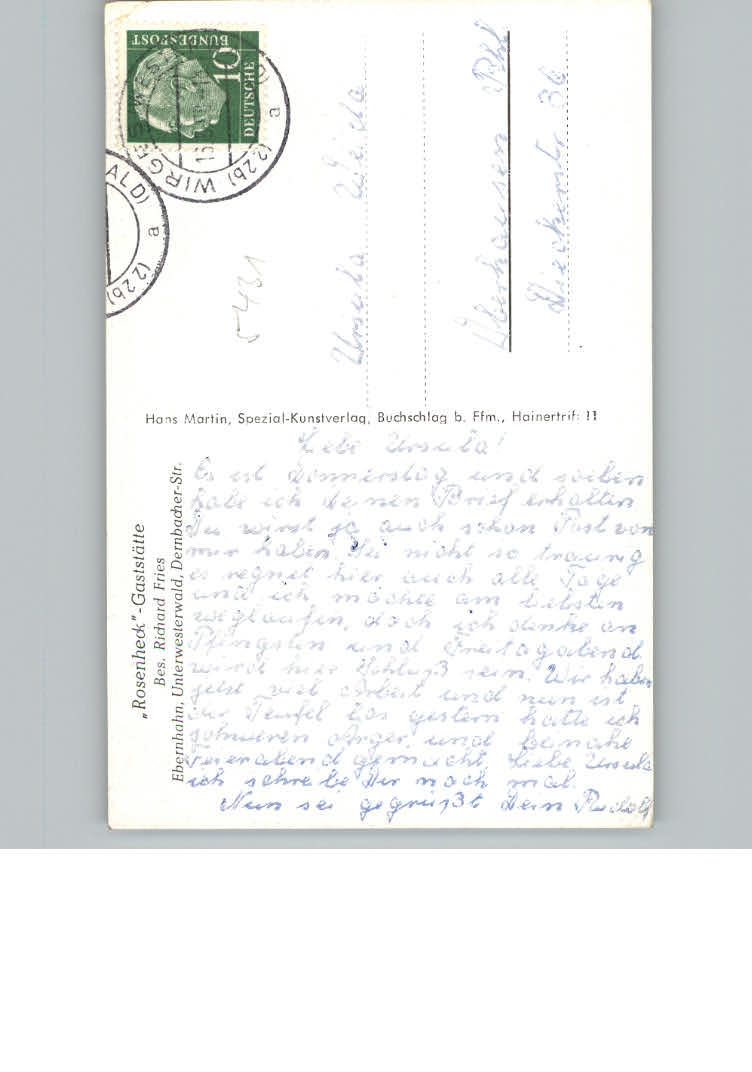 DEUTSCHE
BUNDESPOST
10
(22b) WIRGES
a
ALD)
a
(22b)
5431
Ursula Weida
Oberhausen Rhl
Dieckerstr 36
Hans Martin, Spezial-Kunstverlag, Buchschlag b. Ffm., Hainertrift 11
„Rosenheck"-Gaststätte
Bes. Richard Fries
Ebernhahn, Unterwesterwald, Dernbacher-Str.
Liebe Ursula!
Es ist Donnerstag und soeben
habe ich deinen Brief erhalten
Du wirst ja auch schon Post von
mir haben. Sei nicht so traurig
es regnet hier auch alle Tage
und ich möchte am liebsten
weglaufen, doch ich denke an
Pfingsten und Freitagabend
wird hier Schluß sein. Wir haben
jetzt viel Arbeit und nun ist
der Teufel los gestern hatte ich
schweren Ärger, und beinahe
Feierabend gemacht. Liebe Ursula
ich schreibe Dir noch mal.
Nun sei gegrüßt Dein Rudolf